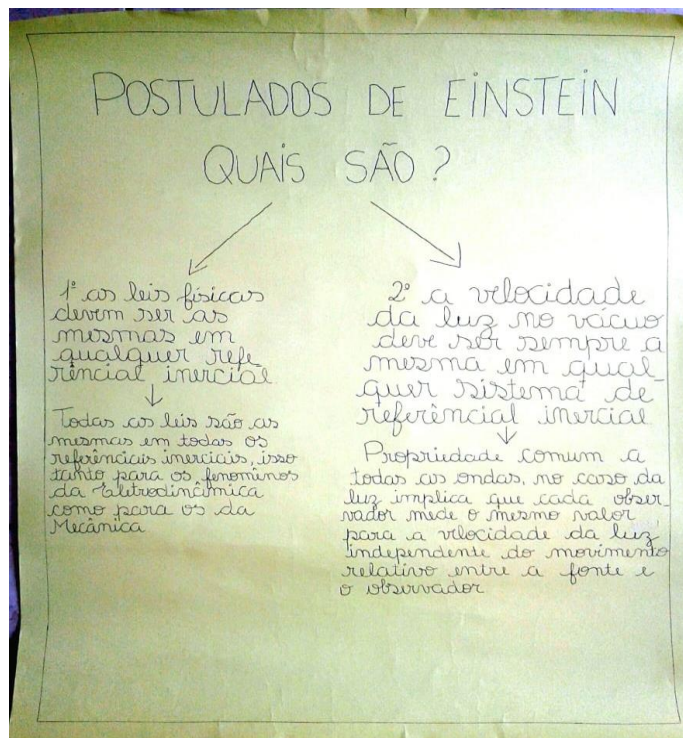 POSTULADOS DE EINSTEIN
QUAIS SÃO?
1º as leis físicas
devem ser as
mesmas em
qualquer refe
rêncial inercial
Todas as leis são as
mesmas em todas os
referênciais inerciais, isso
tanto para os fenominos
da Eletrodinâmica
como para os da
Mecânica
2º a velocidade
da luz no vácuo
deve ser sempre a
mesma em qual-
quer sistema de
referêncial inercial
Propriedade comum a
todas as ondas, no caso da
luz implica que cada obser-
vador mede o mesmo valor
para a velocidade da luz
independente do movimento
relativo entre a fonte e
o observador